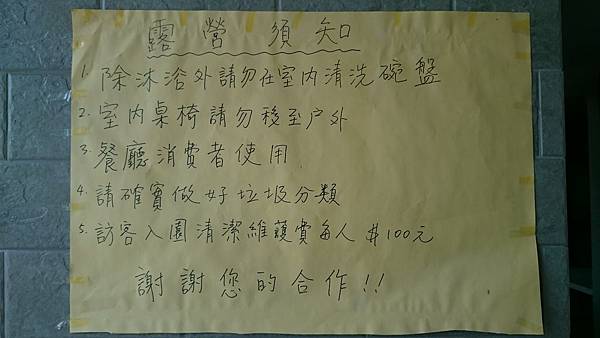 露營須知
1. 除沐浴外請勿在室內清洗碗盤
2. 室內桌椅請勿移至户外
3. 餐廳消費者使用
4. 請確實做好垃圾分類
5. 訪客入園清潔維護費每人 $100元
謝謝您的合作!!